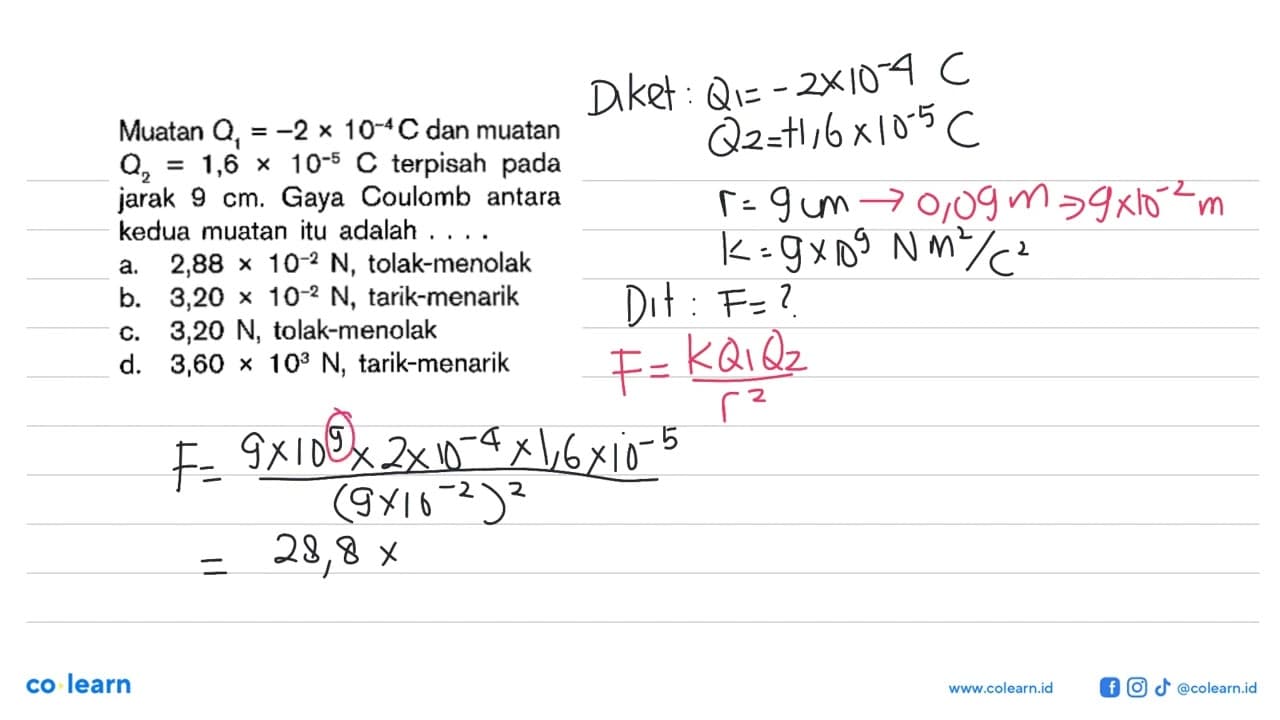 Muatan Q₁ = –2 × 10⁻⁴ C dan muatan
Q₂ = 1,6 × 10⁻⁵ C terpisah pada
jarak 9 cm. Gaya Coulomb antara
kedua muatan itu adalah . . . .
a. 2,88 × 10⁻² N, tolak-menolak
b. 3,20 × 10⁻² N, tarik-menarik
c. 3,20 N, tolak-menolak
d. 3,60 × 10³ N, tarik-menarik
Diket : Q1 = - 2×10⁻⁴ C
Q2 = +1,6 × 10⁻⁵ C
r = 9 cm → 0,09 m ⇒ 9×10⁻² m
k = 9 × 10⁹ N m²/C²
Dit : F = ?
F = kQ1Q2
r²
F = 9×10⁹ × 2×10⁻⁴ × 1,6×10⁻⁵
(9×10⁻²)²
= 28,8 ×
co learn
www.colearn.id
@colearn.id